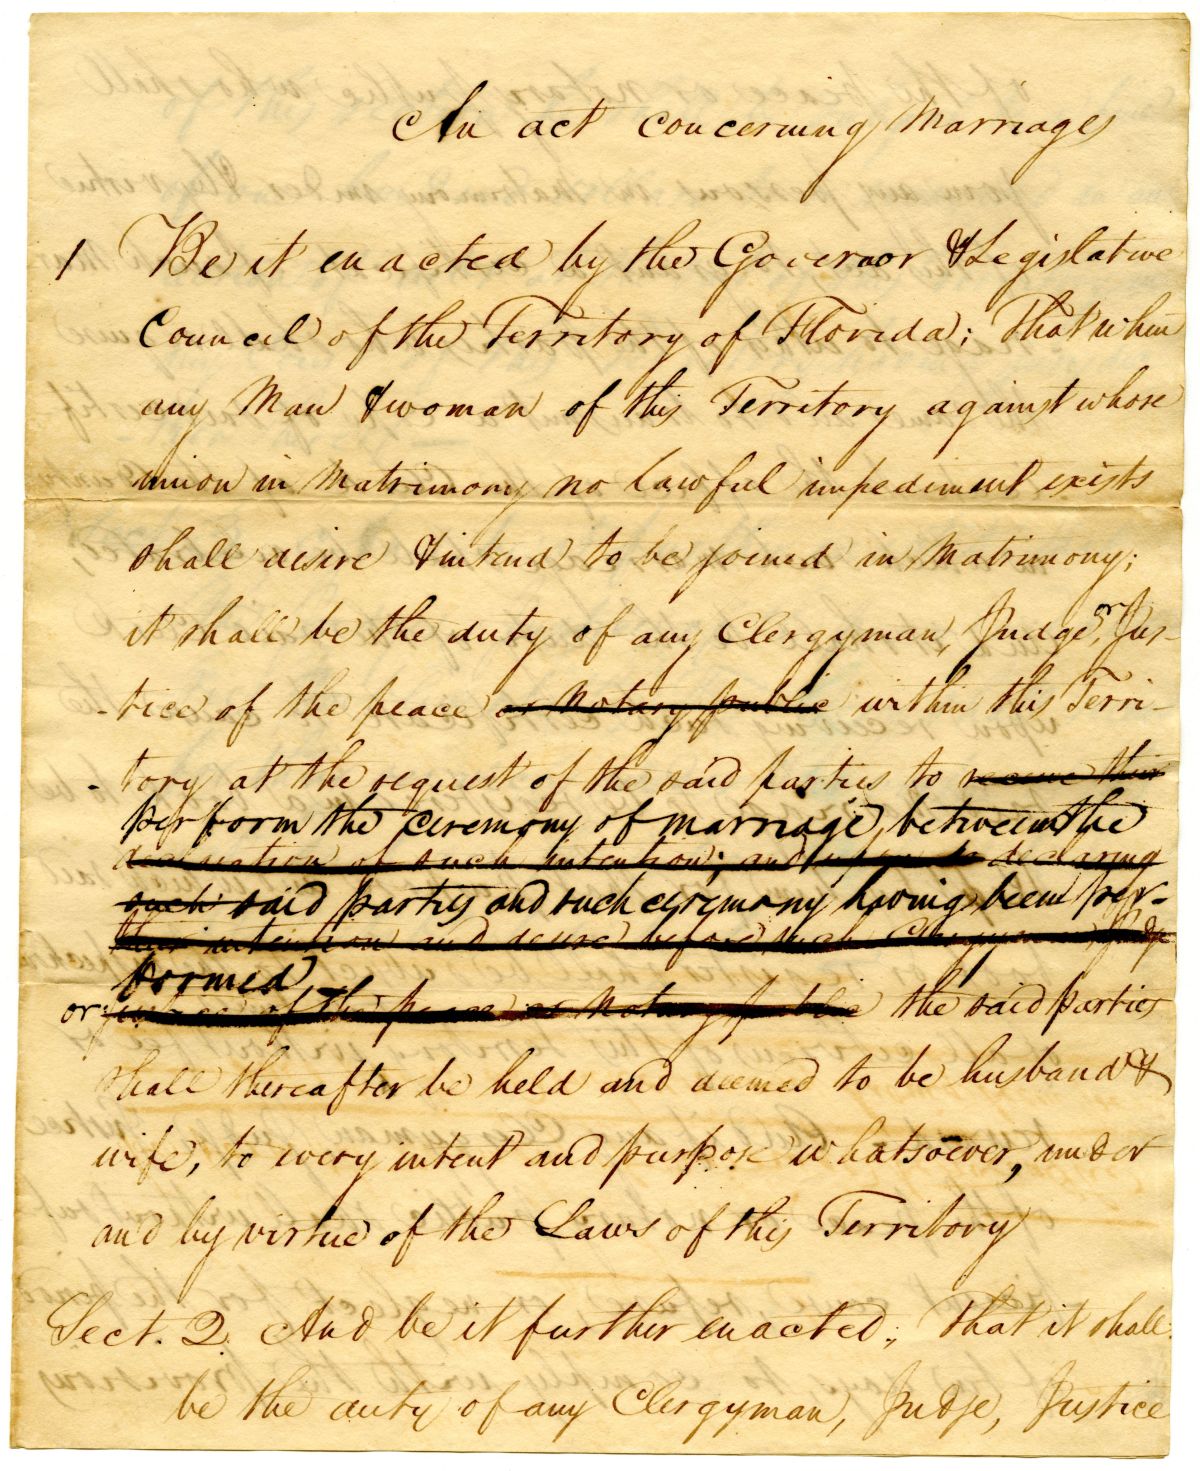 An act concerning Marriages
1 Be it enacted by the Governor & Legislative
Council of the Territory of Florida; That when
any Man & woman of this Territory against whose
union in Matrimony no lawful impediment exists
shall desire & intend to be joined in Matrimony;
it shall be the duty of any Clergyman, Judge, or Jus-
-tice of the peace or Notary public within this Terri-
-tory at the request of the said parties to receive their
perform the ceremony of marriage, between the
declaration of such intention; and declaring
such said parties and such ceremony having been per-
their intention and desire before such Clergyman, Judge
formed
or justice of the peace or Notary public the said parties
shall thereafter be held and deemed to be husband &
wife, to every intent and purpose whatsoever, under
and by virtue of the Laws of this Territory
Sect. 2. And be it further enacted; That it shall
be the duty of any Clergyman, Judge, Justice